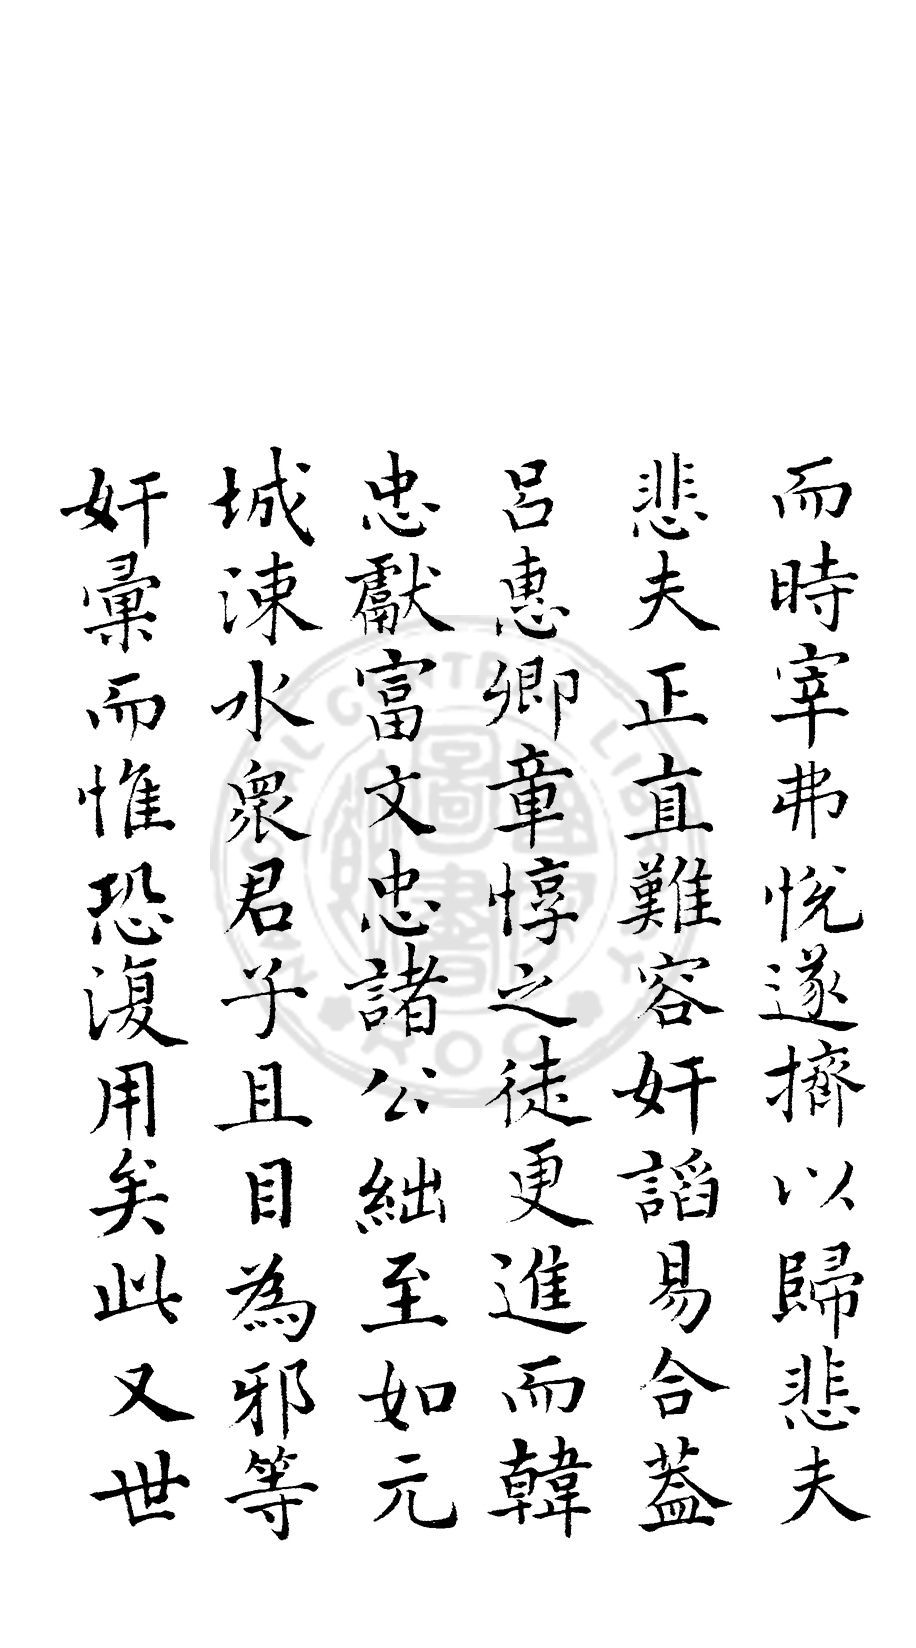 而時宰弗悅遂擠以歸悲夫
悲夫正直難容奸謟易合蓋
呂惠卿章惇之徒更進而韓
忠獻富文忠諸公絀至如元
城涑水衆君子且目為邪等
奸彙而惟恐復用矣此又世